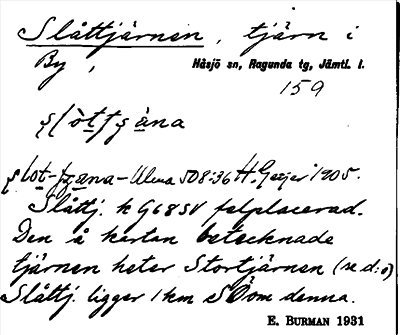 Slåttjärnen, tjärn i
By, Håsjö sn, Ragunda tg, Jämtl. l.
159
slòt/sàna
slot-sana - Ulma 508:36 H. Geijer 1905.
Slåttj. k G68SV felplacerad.
Den å kartan betecknade
tjärnen heter Stortjärnen (se d:o)
Slåttj. ligger 1 km SÖ om denna.
E. BURMAN 1931